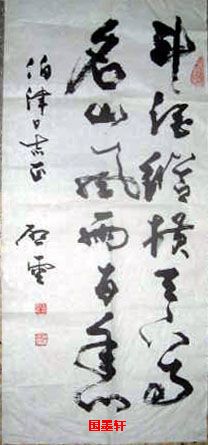 斗酒纵横天下事
名山风雨百年心
伯津同志正
启云
国墨轩